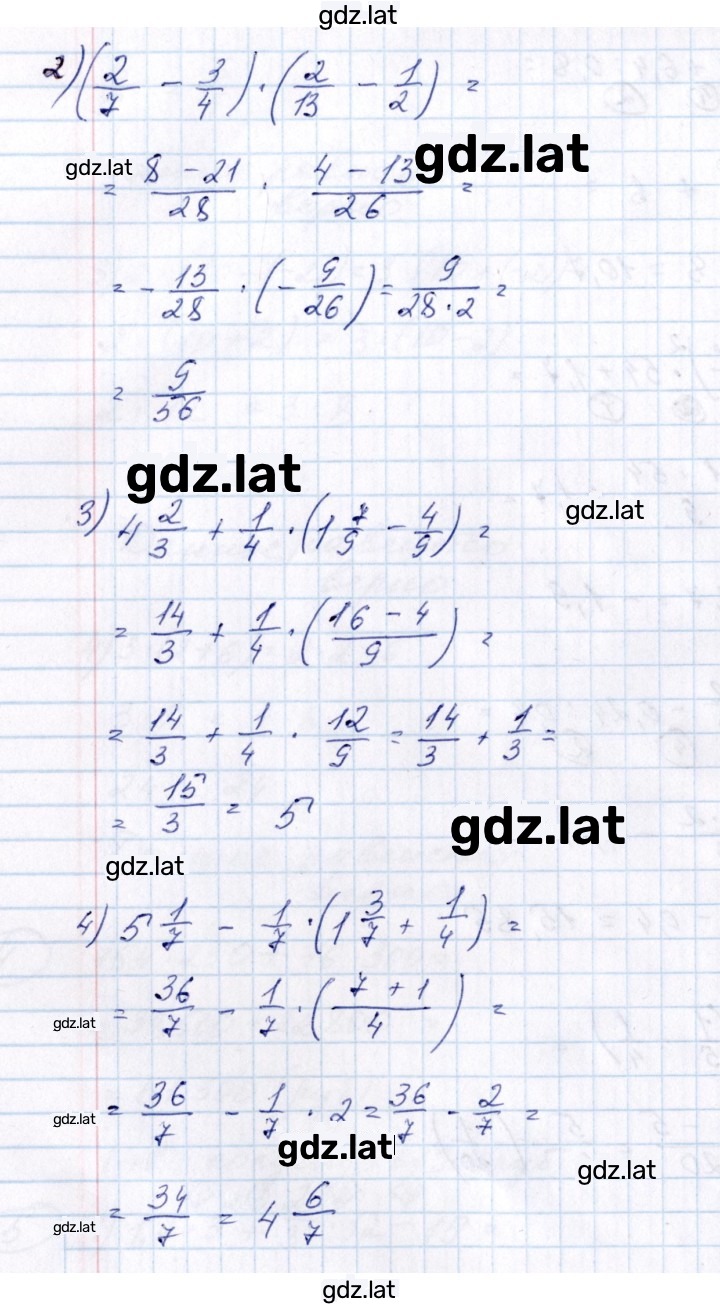 gdz.lat
2) (2/7 - 3/4) · (2/13 - 1/2) =
gdz.lat
gdz.lat
= (8 - 21)/28 · (4 - 13)/26 =
= - 13/28 · (- 9/26) = 9/(28·2) =
= 9/56
gdz.lat
3) 4 2/3 + 1/4 · (1 7/9 - 4/9) =
gdz.lat
= 14/3 + 1/4 · ((16 - 4)/9) =
= 14/3 + 1/4 · 12/9 = 14/3 + 1/3 =
= 15/3 = 5
gdz.lat
gdz.lat
4) 5 1/7 - 1/7 · (1 3/7 + 1/4) =
gdz.lat
= 36/7 - 1/7 · ((7 + 1)/4) =
gdz.lat
= 36/7 - 1/7 · 2 = 36/7 - 2/7 =
gdz.lat
gdz.lat
gdz.lat
= 34/7 = 4 6/7
gdz.lat